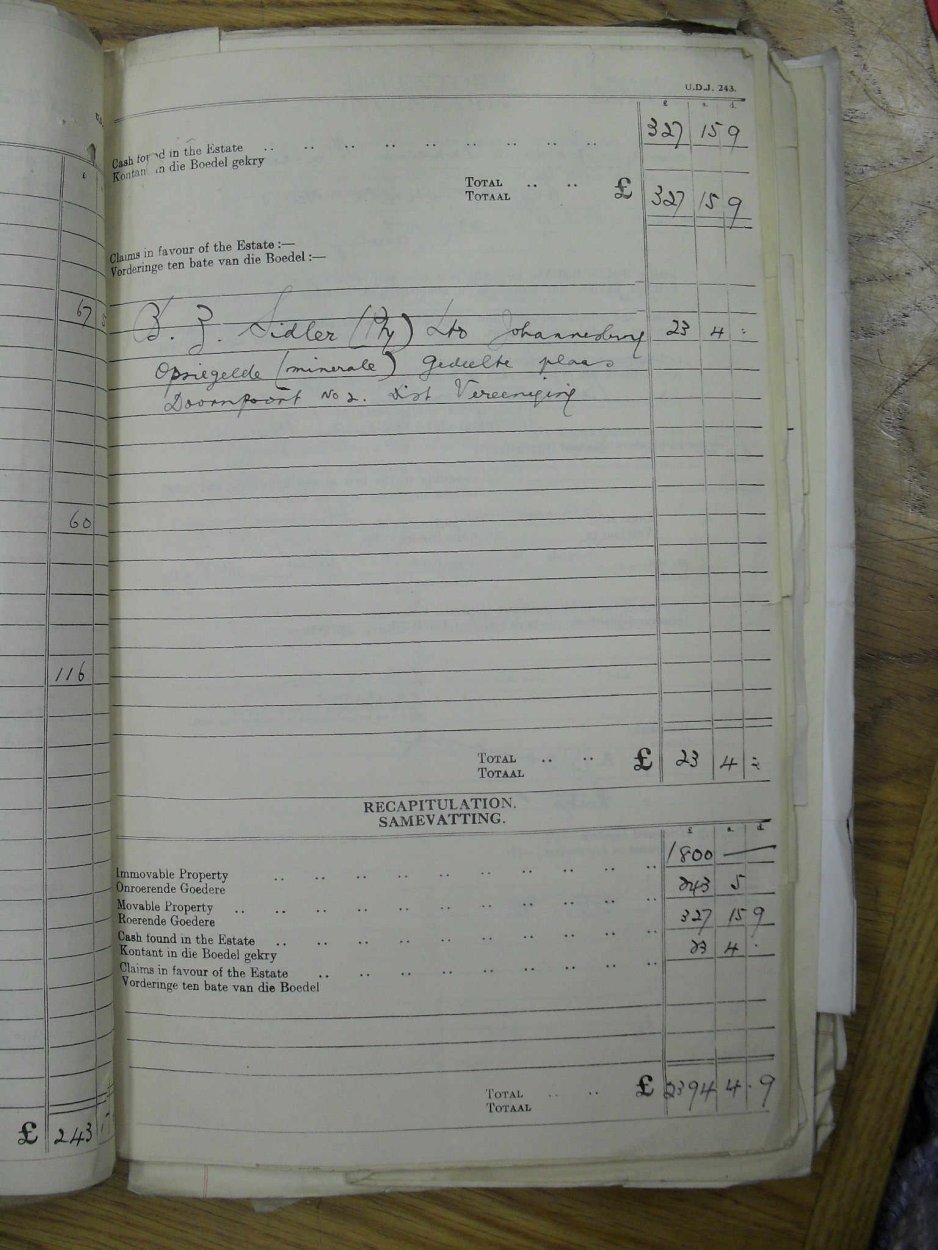 U.D.J. 243.
£ s. d.
Cash found in the Estate .. .. .. .. .. .. .. .. .. 327 15 9
Kontant in die Boedel gekry
TOTAL .. .. £ 327 15 9
TOTAAL
Claims in favour of the Estate :—
Vorderinge ten bate van die Boedel :—
B. Z. Sidler (Pty) Ltd Johannesburg 23 4 :
Opsiegelde (minerale) Gedeelte plaas
Doornpoort No 2. Dist Vereeniging
TOTAL .. .. £ 23 4 :
TOTAAL
RECAPITULATION.
SAMEVATTING.
£ s. d.
Immovable Property .. .. .. .. .. .. .. .. .. .. 1800 —
Onroerende Goedere
Movable Property .. .. .. .. .. .. .. .. .. .. .. 243 5
Roerende Goedere
Cash found in the Estate .. .. .. .. .. .. .. .. .. .. 327 15 9
Kontant in die Boedel gekry
Claims in favour of the Estate .. .. .. .. .. .. .. .. .. 23 4 .
Vorderinge ten bate van die Boedel
TOTAL .. .. £ 2394 4 . 9
TOTAAL
£
67 5
60
116
£ 243